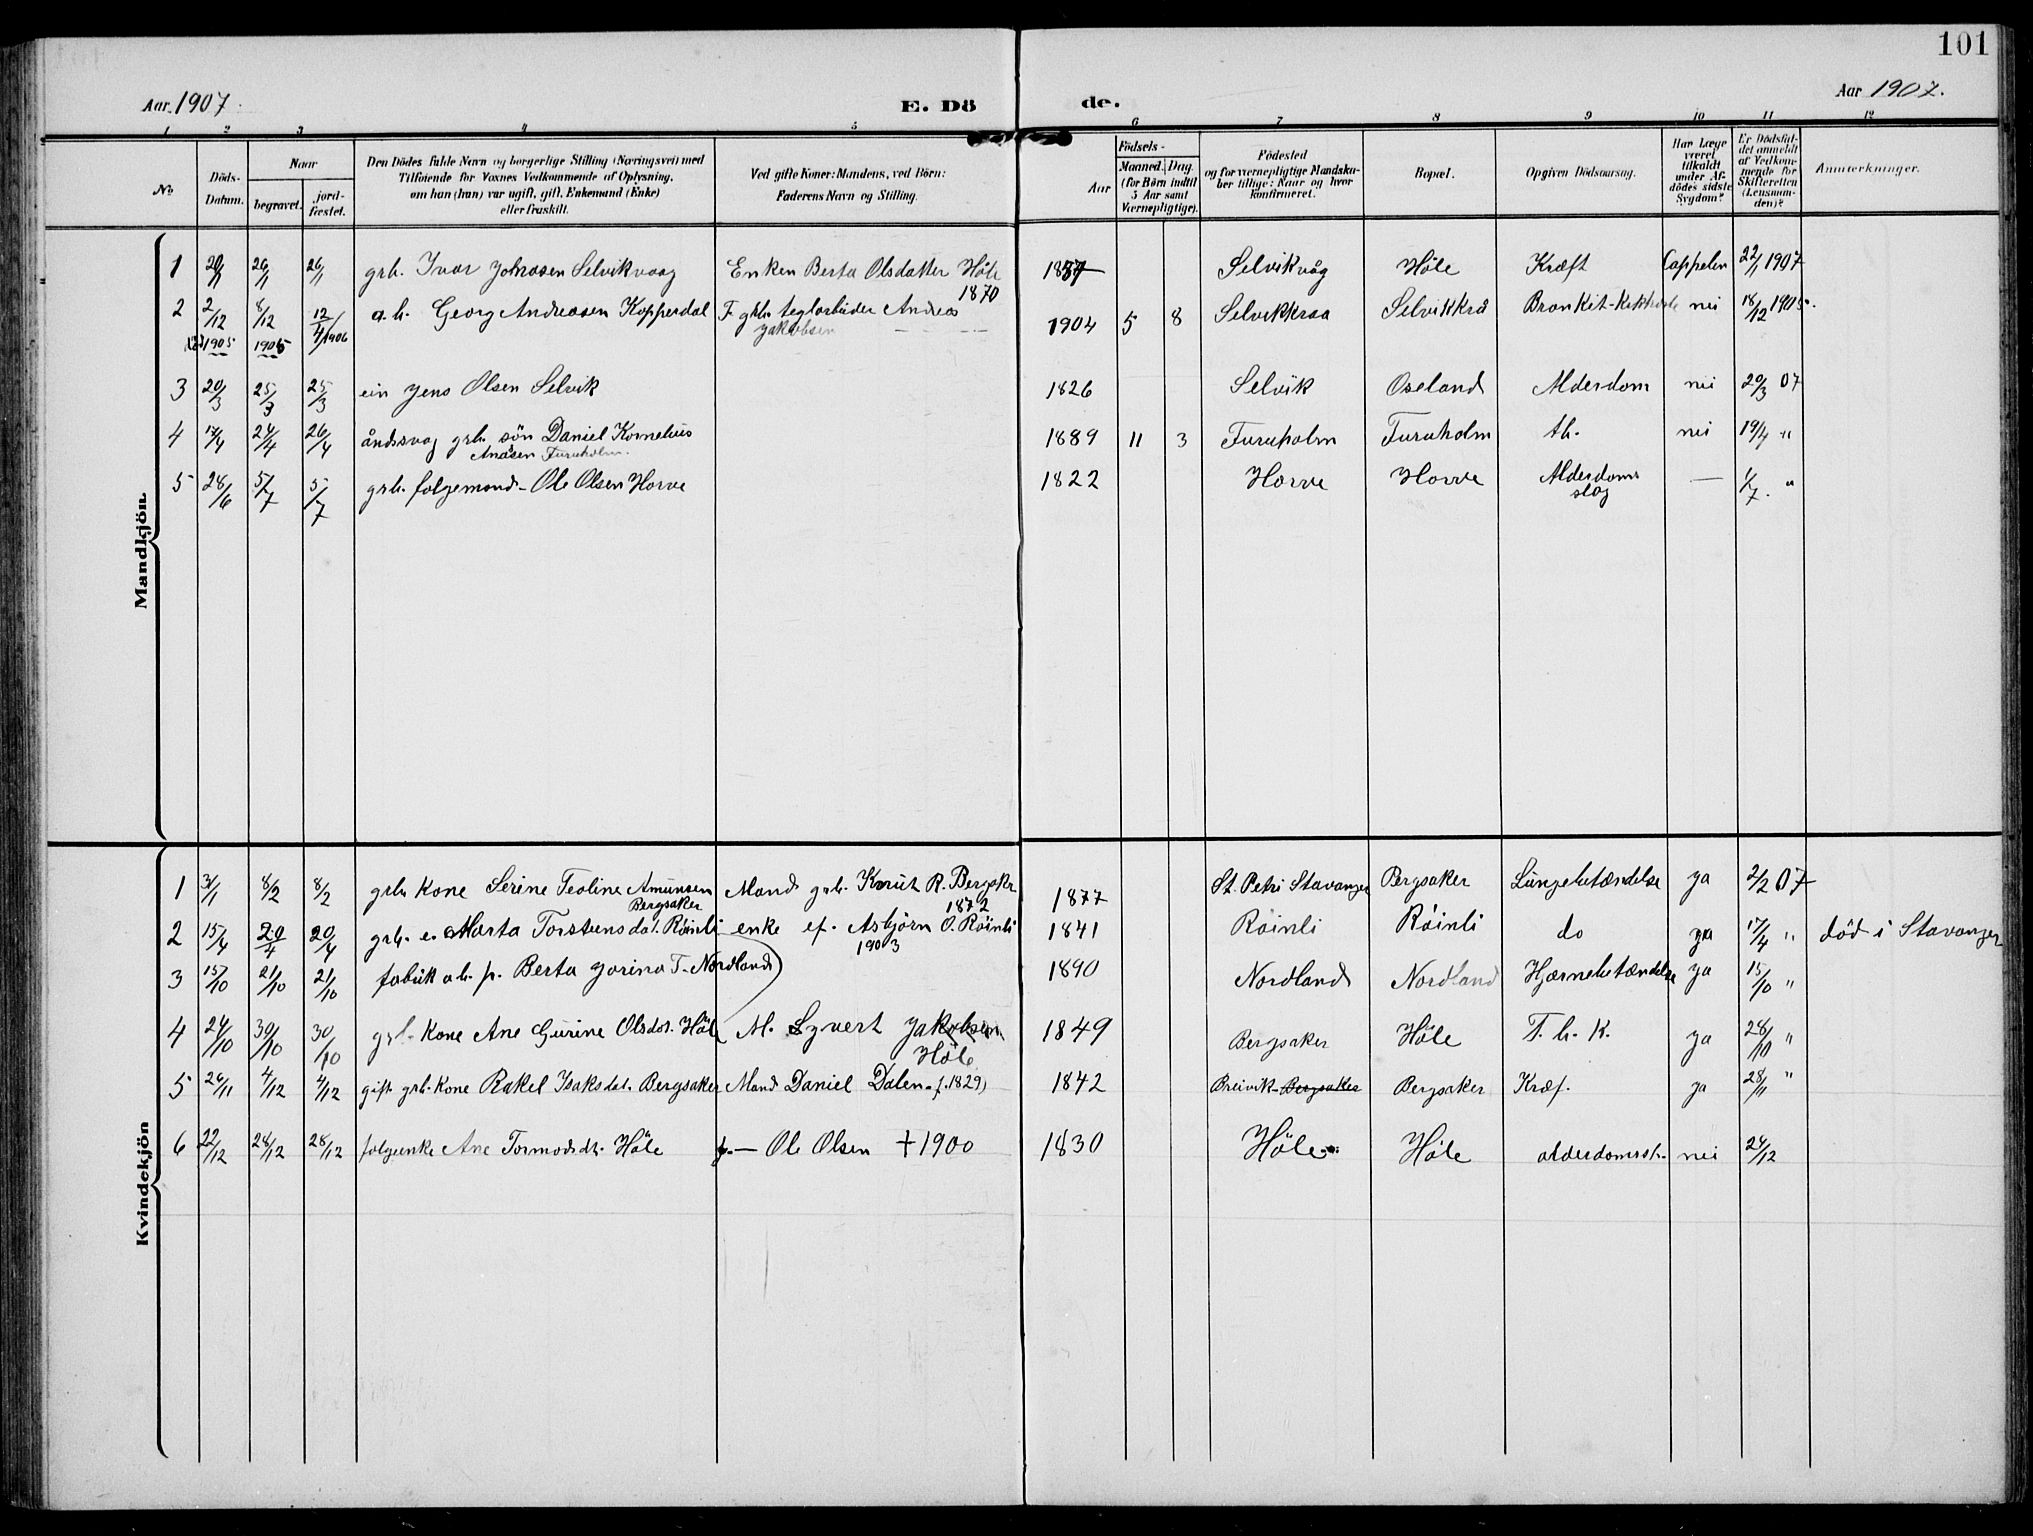 101
Aar 1907.
E. Dö
de.
Aar 1907.
1 2 3 4 5 6 7 8 9 10 11 12
No
Döds-Datum.
Naar
begravet.
jord-fæstet.
Den Dödes fulde Navn og borgerlige Stilling (Næringsvei) med
Tilföiende for Voxnes Vedkommende af Oplysning,
om han (hun) var ugift, gift, Enkemand (Enke)
eller fraskilt.
Ved gifte Koner: Mandens, ved Börn:
Faderens Navn og Stilling.
Födsels-
Aar
Maaned. Dag.
(for Börn indtil
5 Aar samt
Værnepligtige).
Födested
og for værnepligtige Mandska-
ber tillige: Naar og hvor
konfirmeret.
Bopæl.
Opgiven Dödsaarsag.
Har Læge
været
tilkaldt
under Af-
dödes sidste
Sygdom?
Er Dödsfal-
det anmeldt
af Vedkom-
mende for
Skifteretten
(Lensman-
den)?
Anmærkninger.
Mandkjön
1 20/1 26/1 26/1 grb. Ivar Johnasen Selvikvaag Enken Berta Olsdatter Höle 1870 1837 Selvikvåg Höle Kræft Cappelen 22/1 1907
2 2/12 1905 8/12 1905 12/4 1906 a.b. Georg Andreasen Kopperdal F. grb. teglarbeider Andreas Jakobsen 1904 5 8 Selvikkraa Selvikkrå Bronkit-Kikhoste nei 18/12 1905.
3 20/3 25/3 25/3 ein Jens Olsen Selvik 1826 Selvik Oseland Alderdom nei 20/3 07
4 17/4 24/4 26/4 åndssvag grb. sön Daniel Kornelius Andsen Furuholm. 1889 11 3 Furuholm Furuholm tb. nei 19/4 "
5 28/6 5/7 5/7 grb. folgemand - Ole Olsen Horve 1822 Horve Horve Alderdoms slag — 1/7. "
Kvindekjön
1 31/1 8/2 8/2 grb kone Serine Teoline Amunsen Bergsaker Mand grb. Knut R. Bergsaker 1872 1877 St. Petri Stavanger Bergsaker Lungebetændelse ja 2/2 07
2 15/4 20/4 20/4 grb. e. Marta Torsteensdat. Röinli enke ef. Asbjörn O. Röinli 1903 1841 Röinli Röinli do ja 17/4 " död i Stavanger
3 15/10 21/10 21/10 fabrik ab. p. Berta Jorina T. Nordland 1890 Nordland Nordland Hjærnebetændelse ja 15/10 "
4 24/10 30/10 30/10 grb. kone Ane Gurine Olsdat. Höle M. Syvert Jakobsen Höle 1849 Bergsaker Höle T. b. K. ja 28/10 "
5 26/11 4/12 4/12 gift grb. kone Rakel Isaksdat. Bergsaker Mand Daniel Dalen (f. 1829) 1842 Breivik Bergsaker Bergsaker Kræf. ja 28/11 "
6 22/12 28/12 28/12 folgeenke Ane Tormodsdt. Höle — Ole Olsen + 1900 1830 Höle Höle alderdomssl. nei 24/12